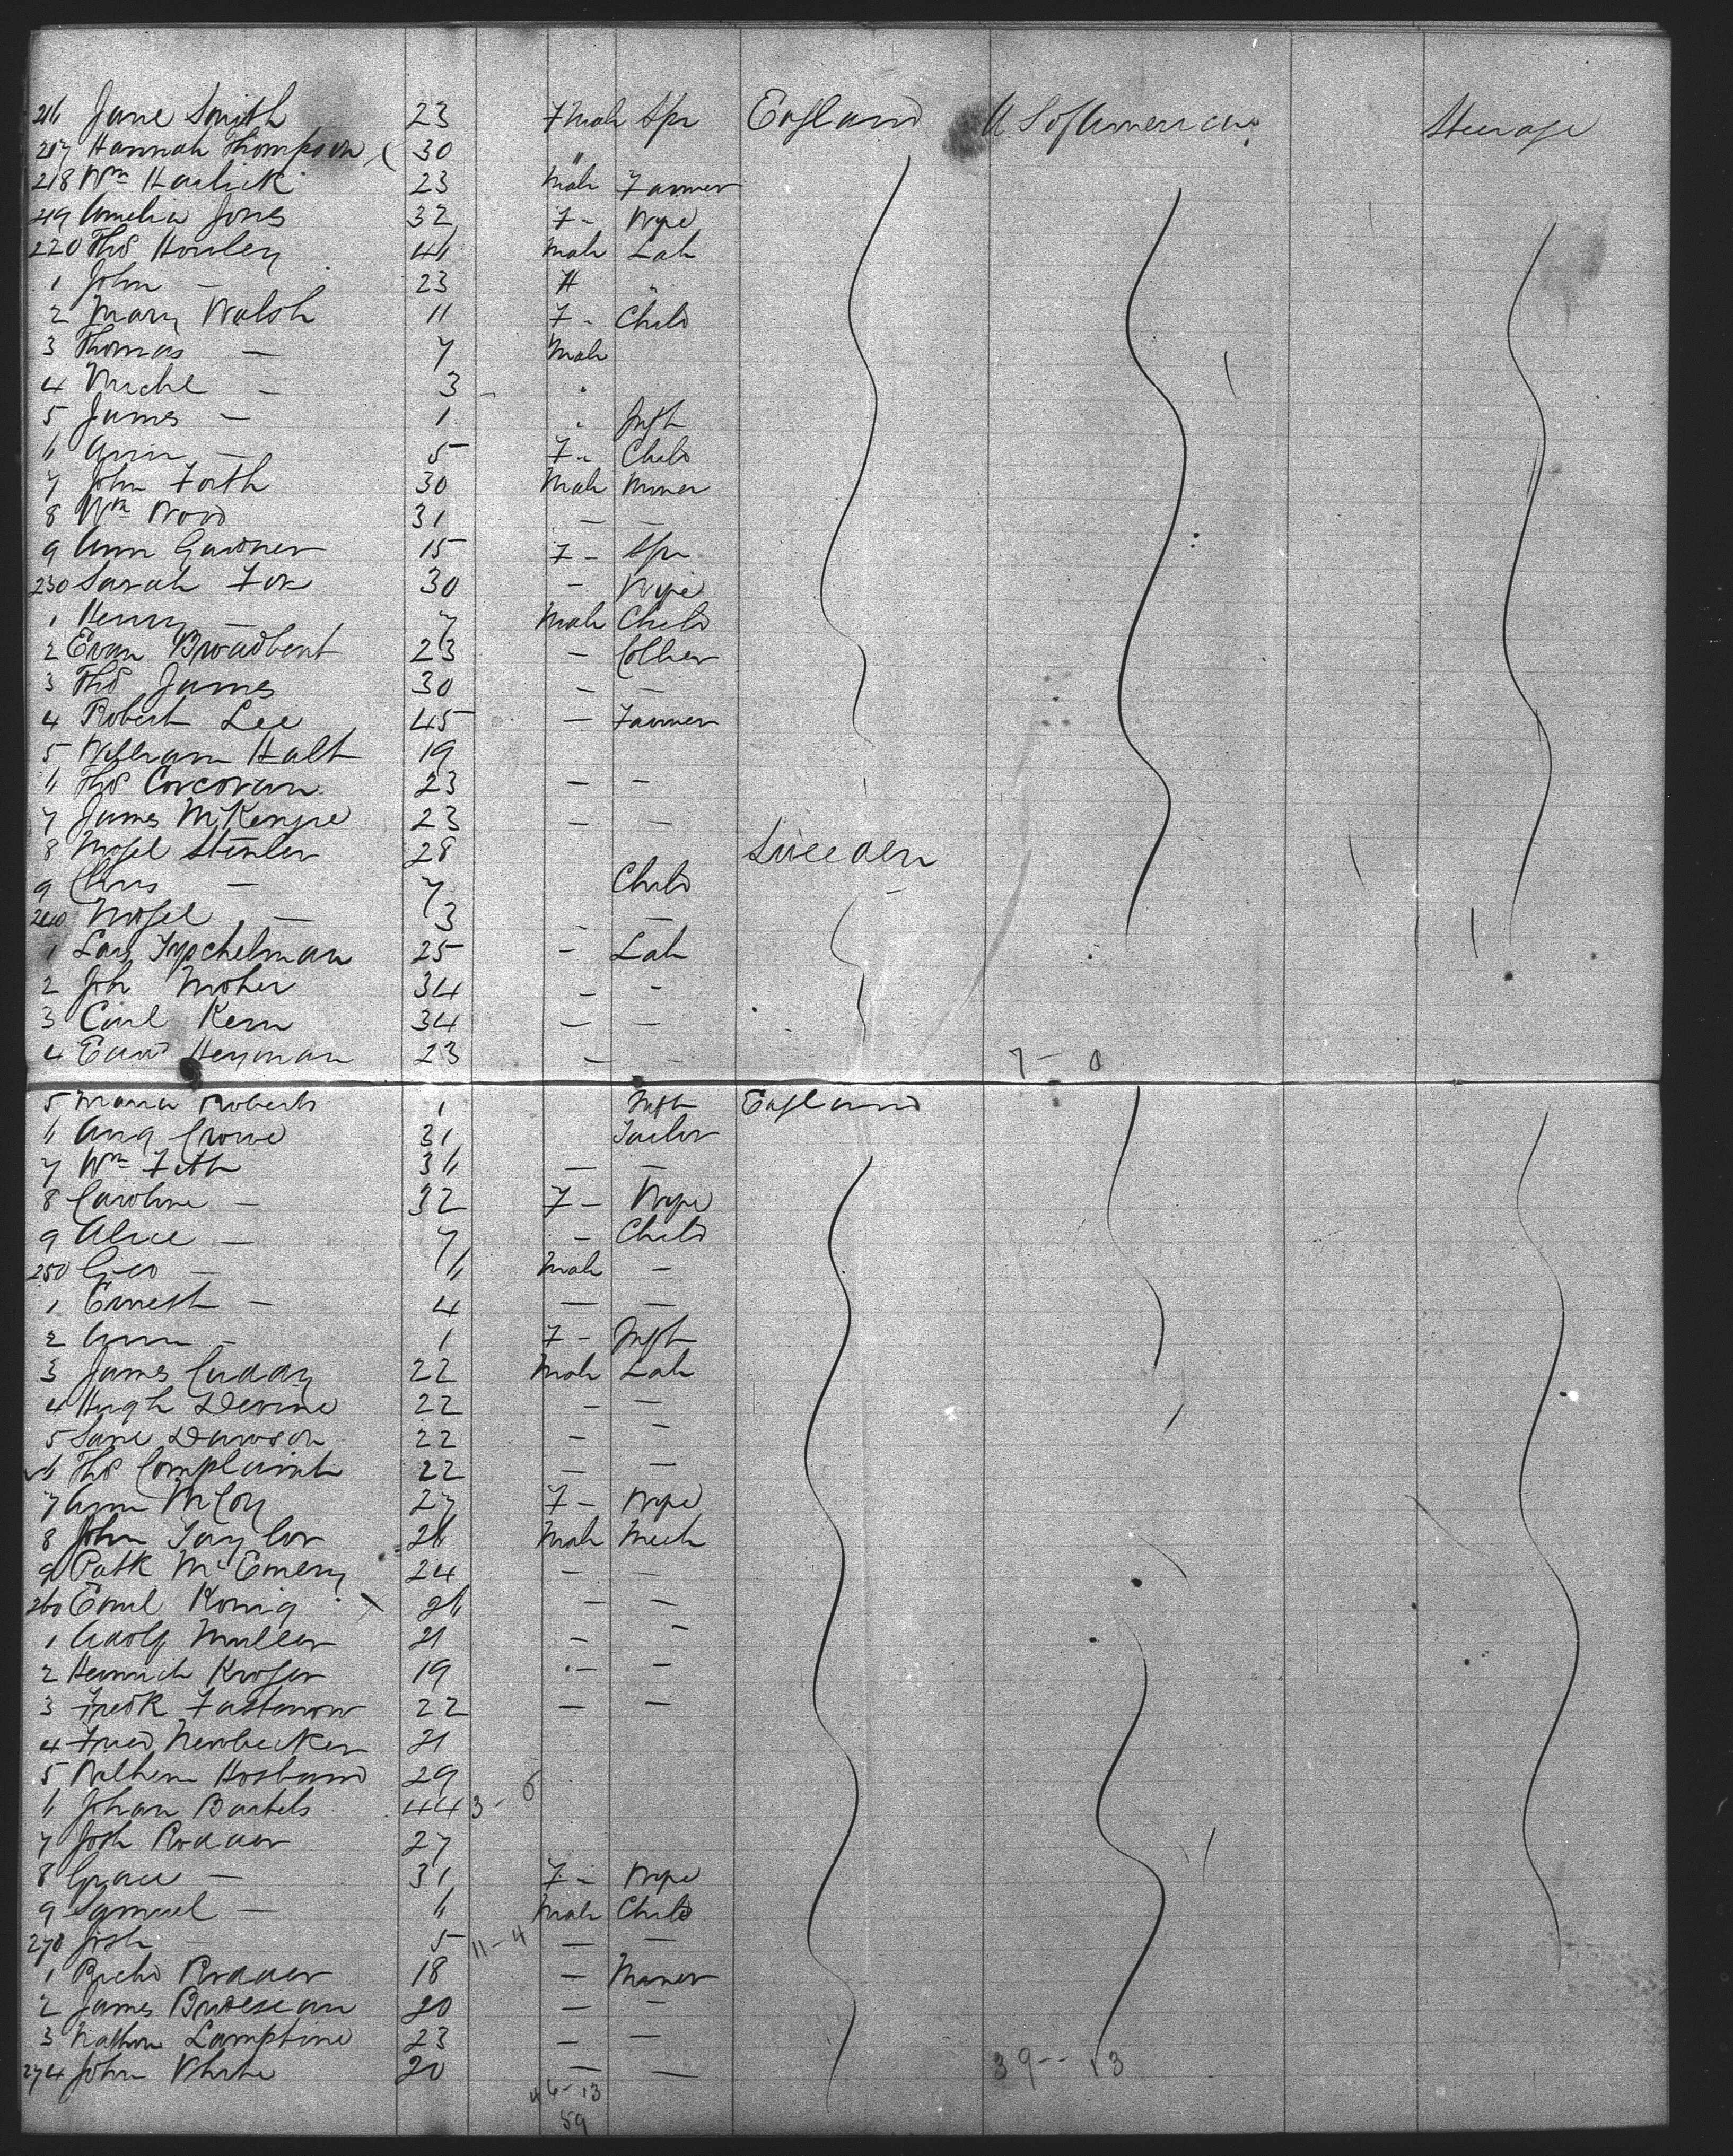 216 Jane Smith 23 Fmale Spr England U S of America Steerage
217 Hannah Thompson 30 "
218 Wm 23 Male Farmer
219 Amelia Jones 32 F - Wife
220 Thos Howley 41 Male Lab
1 John - 23 "
2 Mary Walsh 11 F - Child
3 Thomas - 7 Male
4 Michl - 3
5 James - 1 Inft
6 Ann - 5 F - Child
7 John Forth 30 Male Miner
8 Wm Wood 31 - -
9 Ann Gardner 15 F - Spr
230 Sarah Fox 30 - Wife
1 Henry - 7 Male Child
2 Evan Broadbent 23 - Collier
3 Thos James 30 - -
4 Robert Lee 45 - Farmer
5 William Halt 19
6 Thos Corcoran 23 - -
7 James McKenzie 23 - -
8 28 Sweeden
9 Chrs - 7 Child -
240 - 3 -
1 25 - Lab
2 Joh Moher 34 - -
3 Carl Kern 34 - -
4 Heyman 23 - - 7 - 0
5 Maria Roberts 1 Inft England
6 Aug Crowe 31 Tailor
7 Wm Fith 36 - -
8 Caroline - 32 F - Wife
9 Alice - 7 - Child
250 Geo - 6 Male -
1 Ernest - 4 - -
2 Ann - 1 F - Inft
3 James Cuddy 22 Male Lab
4 Hugh Devine 22 - -
5 Dawson 22 - -
6 Thos Complaint 22 - -
7 Ann McCoy 27 F - Wife
8 John Taylor 26 Male Mech
9 Patk McEmery 24 - -
260 Emil Konig X 26 - -
1 Adolf Muller 21 - -
2 Heinrich Kroger 19 - -
3 Fredk Fastenow 22 - -
4 Fried Newbecker 21
5 Wilhem Hosband 29
6 Johan Bartels 44 3 - 6
7 Josh Rodder 27
8 Grace - 31 F - Wife
9 Samuel - 6 Male Child
270 Josh - 5 11 - 4 - -
1 Richd Rodder 18 - Miner
2 James 20 - -
3 Lamptine 23 - -
274 John White 20 - - 39 - 13
46 - 13
59